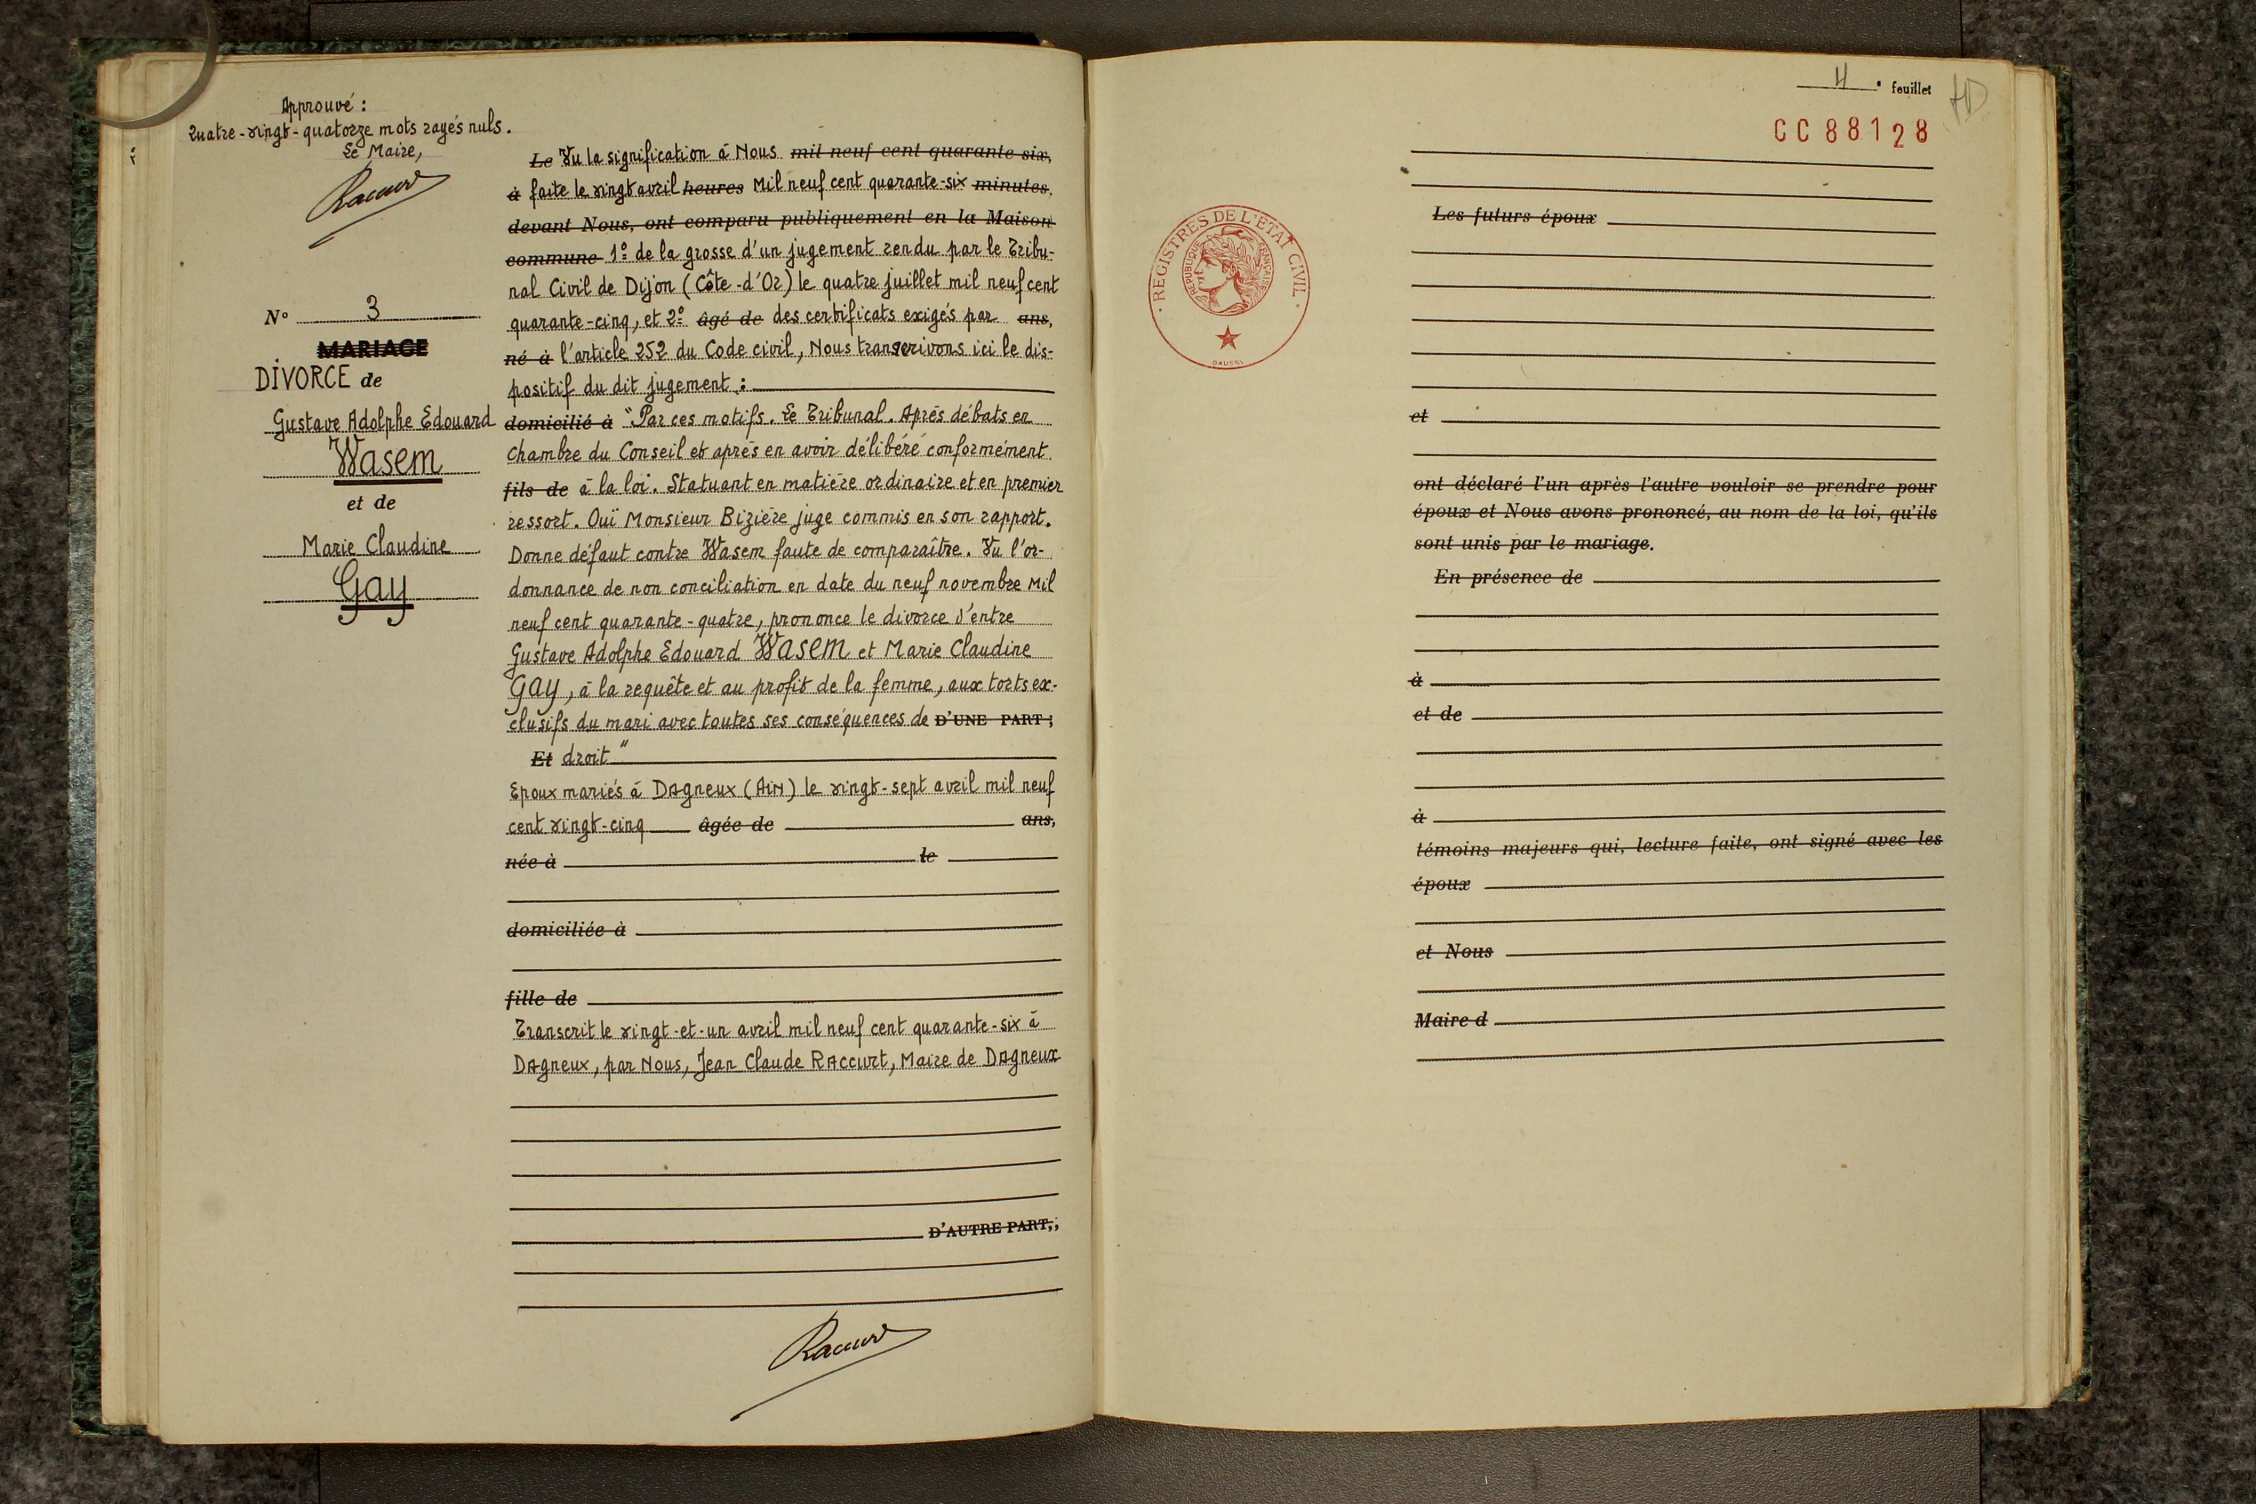 Approuvé :
Quatre-vingt-quatorze mots rayés nuls.
Le Maire,
Raccurt
N° 3
MARIAGE
DIVORCE de
Gustave Adolphe Edouard
Wasem
et de
Marie Claudine
Gay
Le Vu la signification à Nous mil neuf cent quarante-six,
à faite le vingt avril heures Mil neuf cent quarante-six minutes,
devant Nous, ont comparu publiquement en la Maison
commune 1° de la grosse d'un jugement rendu par le Tribu-
nal Civil de Dijon (Côte-d'Or) le quatre juillet mil neuf cent
quarante-cinq, et 2° âgé de des certificats exigés par ans,
né à l'article 252 du Code civil, Nous transcrivons ici le dis-
positif du dit jugement :
domicilié à "Par ces motifs. Le Tribunal. Après débats en
Chambre du Conseil et après en avoir délibéré conformément
fils de à la loi. Statuant en matière ordinaire et en premier
ressort. Ouï Monsieur Bizière juge commis en son rapport.
Donne défaut contre Wasem faute de comparaître. Vu l'or-
donnance de non conciliation en date du neuf novembre Mil
neuf cent quarante-quatre, prononce le divorce d'entre
Gustave Adolphe Edouard Wasem et Marie Claudine
Gay, à la requête et au profit de la femme, aux torts ex-
clusifs du mari avec toutes ses conséquences de D'UNE PART ;
Et droit"
Epoux mariés à Dagneux (Ain) le vingt-sept avril mil neuf
cent vingt-cinq âgée de ans,
née à le
domiciliée à
fille de
Transcrit le vingt-et-un avril mil neuf cent quarante-six à
Dagneux, par Nous, Jean Claude RACCURT, Maire de Dagneux
D'AUTRE PART,;
Raccurt
4e feuillet
AD
CC 88128
REGISTRES DE L'ETAT CIVIL
REPUBLIQUE FRANÇAISE
Les futurs époux
et
ont déclaré l'un après l'autre vouloir se prendre pour
époux et Nous avons prononcé, au nom de la loi, qu'ils
sont unis par le mariage.
En présence de
à
et de
à
témoins majeurs qui, lecture faite, ont signé avec les
époux
et Nous
Maire d